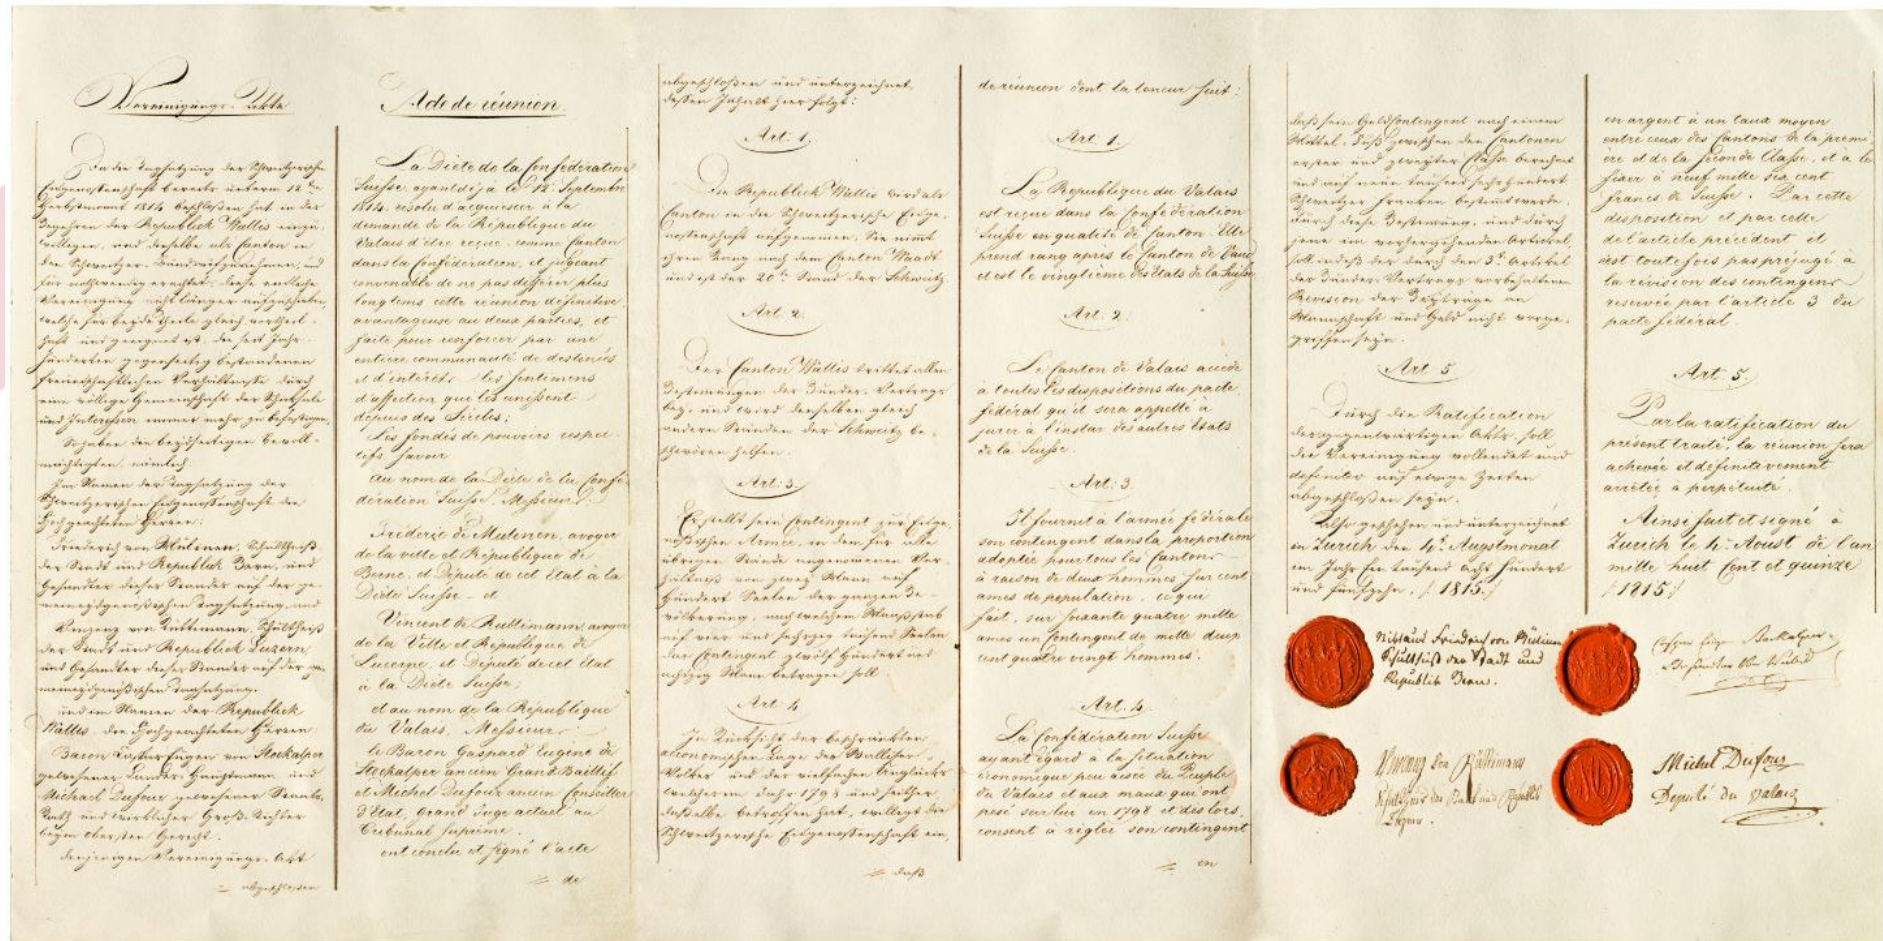 Vereinigungs-Akte
In die Tagsatzung der Schweizerische
Eidgenossenschaft bereits unterm 12ten
Herbstmonat 1814 beschlossen hat in das
Begehren der Republick Wallis einzu-
willigen, und dieselbe als Canton in
den Schweitzer-Bund aufzunehmen, und
für nothwendig erachtet, diese endliche
Vereinigung nicht länger aufzuschieben,
welche für beyde Theile gleich vortheil-
haft und geeignet ist, die seit Jahr-
hunderten gegenseitig bestandenen
freundschaftlichen Verhältnisse durch
eine völlige Gemeinschaft der Schicksale
und Interessen immer mehr zu befestigen,
So haben die beydseitigen Bevoll-
mächtigten, nämlich
Im Namen der Tagsatzung der
Schweitzerischen Eidgenossenschaft die
Hochgeachteten Herren:
Friederich von Mülenen, Schultheiß
der Stadt und Republick Bern, und
Gesandter dieses Standes auf der ge-
meineidgenößischen Tagsatzung, und
Vinzenz von Rüttimann, Schultheiß
der Stadt und Republick Luzern,
und Gesandter dieses Standes auf der ge-
meineidgenößischen Tagsatzung.
und im Namen der Republick
Wallis die Hochgeachteten Herren
Baron Caspar Eugen von Stockalper
gewesener Landes-Hauptmann und
Michael Dufour gewesener Staats-
Rath und wirklicher Groß-Richter
beym obersten Gericht.
denjenigen Vereinigungs-Akt
abgeschlossen
Acte de réunion.
La Diète de la Confédération
Suisse, ayant déja le 12. Septembre
1814. résolu d'acquiescer à la
demande de la République du
Valais d'être reçue comme Canton
dans la Confédération, et jugeant
convenable de ne pas différer plus
longtems cette réunion définitive,
avantageuse au deux parties, et
faite pour renforcer par une
entière communauté de destinées
et d'intérêts les sentimens
d'affection qui les unissent
depuis des Siècles;
Les fondés de pouvoirs respec-
tifs, savoir
au nom de la Diète de la Confé-
dération Suisse, Messieurs:
Fréderic de Mulinen, avoyer
de la ville et République de
Berne, et Député de cet Etat à la
Diète Suisse - et
Vincent de Ruttimann, avoyer
de la Ville et République de
Lucerne, et Député de cet Etat
à la Diète Suisse;
et au nom de la République
du Valais, Messieurs
le Baron Gaspard Eugène de
Stockalper ancien Grand Baillif
et Michel Dufour ancien Conseiller
d'Etat, Grand Juge actuel au
Tribunal Suprême.
ont conclu et signé l'acte
de
abgeschloßen und unterzeichnet,
dessen Inhalt hier folgt:
Art. 1.
Die Republick Wallis wird als
Canton in die Schweitzerische Eidge-
nossenschaft aufgenommen. Sie nimt
ihren Rang nach dem Canton Waadt
und ist der 20te Stand der Schweitz
Art. 2.
Der Canton Wallis trittet allen
Bestimmungen des Bundes-Vertrags
bey, und wird denselben gleich
andern Ständen der Schweitz be-
schwören helfen.
Art: 3.
Er stellt sein Contingent zur Eidge-
nößischen Armee, in dem für alle
übrigen Stände angenommenen Ver-
hältniß von zwey Mann auf
hundert Seelen der ganzen Be-
völkerung, nach welchem Maaßstab
auf vier und sechszig tausend Seelen
das Contingent zwölf hundert und
achtzig Mann betragen soll
Art. 4
In Rücksicht der beschränkten
ökonomischen Lage des Walliser-
Volkes und der vielfachen Unglücke
welche im Jahr 1798 und seither
dasselbe betroffen hat, williget die
Schweitzerische Eidgenossenschaft ein,
daß
de réunion dont la teneur suit:
Art. 1.
La République du Valais
est reçue dans la Confédération
Suisse en qualité de Canton. Elle
prend rang après le Canton de Vaud
et est le vingtième des Etats de la Suisse
Art. 2.
Le Canton de Valais accède
à toutes les dispositions du pacte
fédéral qu'il sera appellé à
jurer à l'instar des autres Etats
de la Suisse.
Art: 3
Il fournit à l'armée fédérale
son contingent dans la proportion
adoptée pour tous les Cantons
à raison de deux hommes sur cent
ames de population, ce qui
fait, sur soixante quatre mille
ames un Contingent de mille deux
cent quatre vingt hommes.
Art. 4.
La Confédération Suisse
ayant égard à la situation
économique peu aisée du Peuple
du Valais et aux maux qui ont
pesé sur lui en 1798 et dès lors,
consent à régler son contingent
en
daß sein Geldcontingent nach einem
Mittel-Fuß zwischen den Cantonen
erster und zweyter Classe berechnet
und auf neun tausend sechs hundert
Schweitzer Franken bestimt werde.
Durch diese Bestimung, und durch
jene im vorhergehenden Artickel,
soll indeß der durch den 3t. Artikel
des Bundes-Vertrags vorbehaltenen
Revision der Beyträge an
Mannschaft und Geld nicht vorge-
griffen seyn.
Art. 5
Durch die Ratification
des gegenwärtigen Akts, soll
die Vereinigung vollendet und
definitiv auf ewige Zeiten
abgeschloßen seyn.
Also geschehen und unterzeichnet
in Zürich den 4t. Augstmonat
im Jahr Ein tausend Acht hundert
und fünfzehn. /: 1815:/
Niklaus Friedrich von Mülinen
Schultheiß der Stadt und
Republik Bern.
Vincenz von Rüttimann
Schultheiss der Stadt und Republik
Luzern.
en argent à un taux moyen
entre ceux des Cantons de la premi-
ère et de la seconde Classe, et à le
fixer à neuf mille six cent
francs de Suisse. Par cette
disposition et par celle
de l'article précédent il
n'est toutefois pas préjugé à
la révision des contingens
réservée par l'article 3 du
pacte fédéral.
Art. 5.
Par la ratification du
présent traité, la réunion sera
achevée et définitivement
arrêtée à perpétuité.
Ainsi fait et signé à
Zurich le 4. Aoust de l'an
mille huit Cent et quinze
/:1815:/
Stockalper
Gesandter von Wallis
Michel Dufour
Deputé du Valais